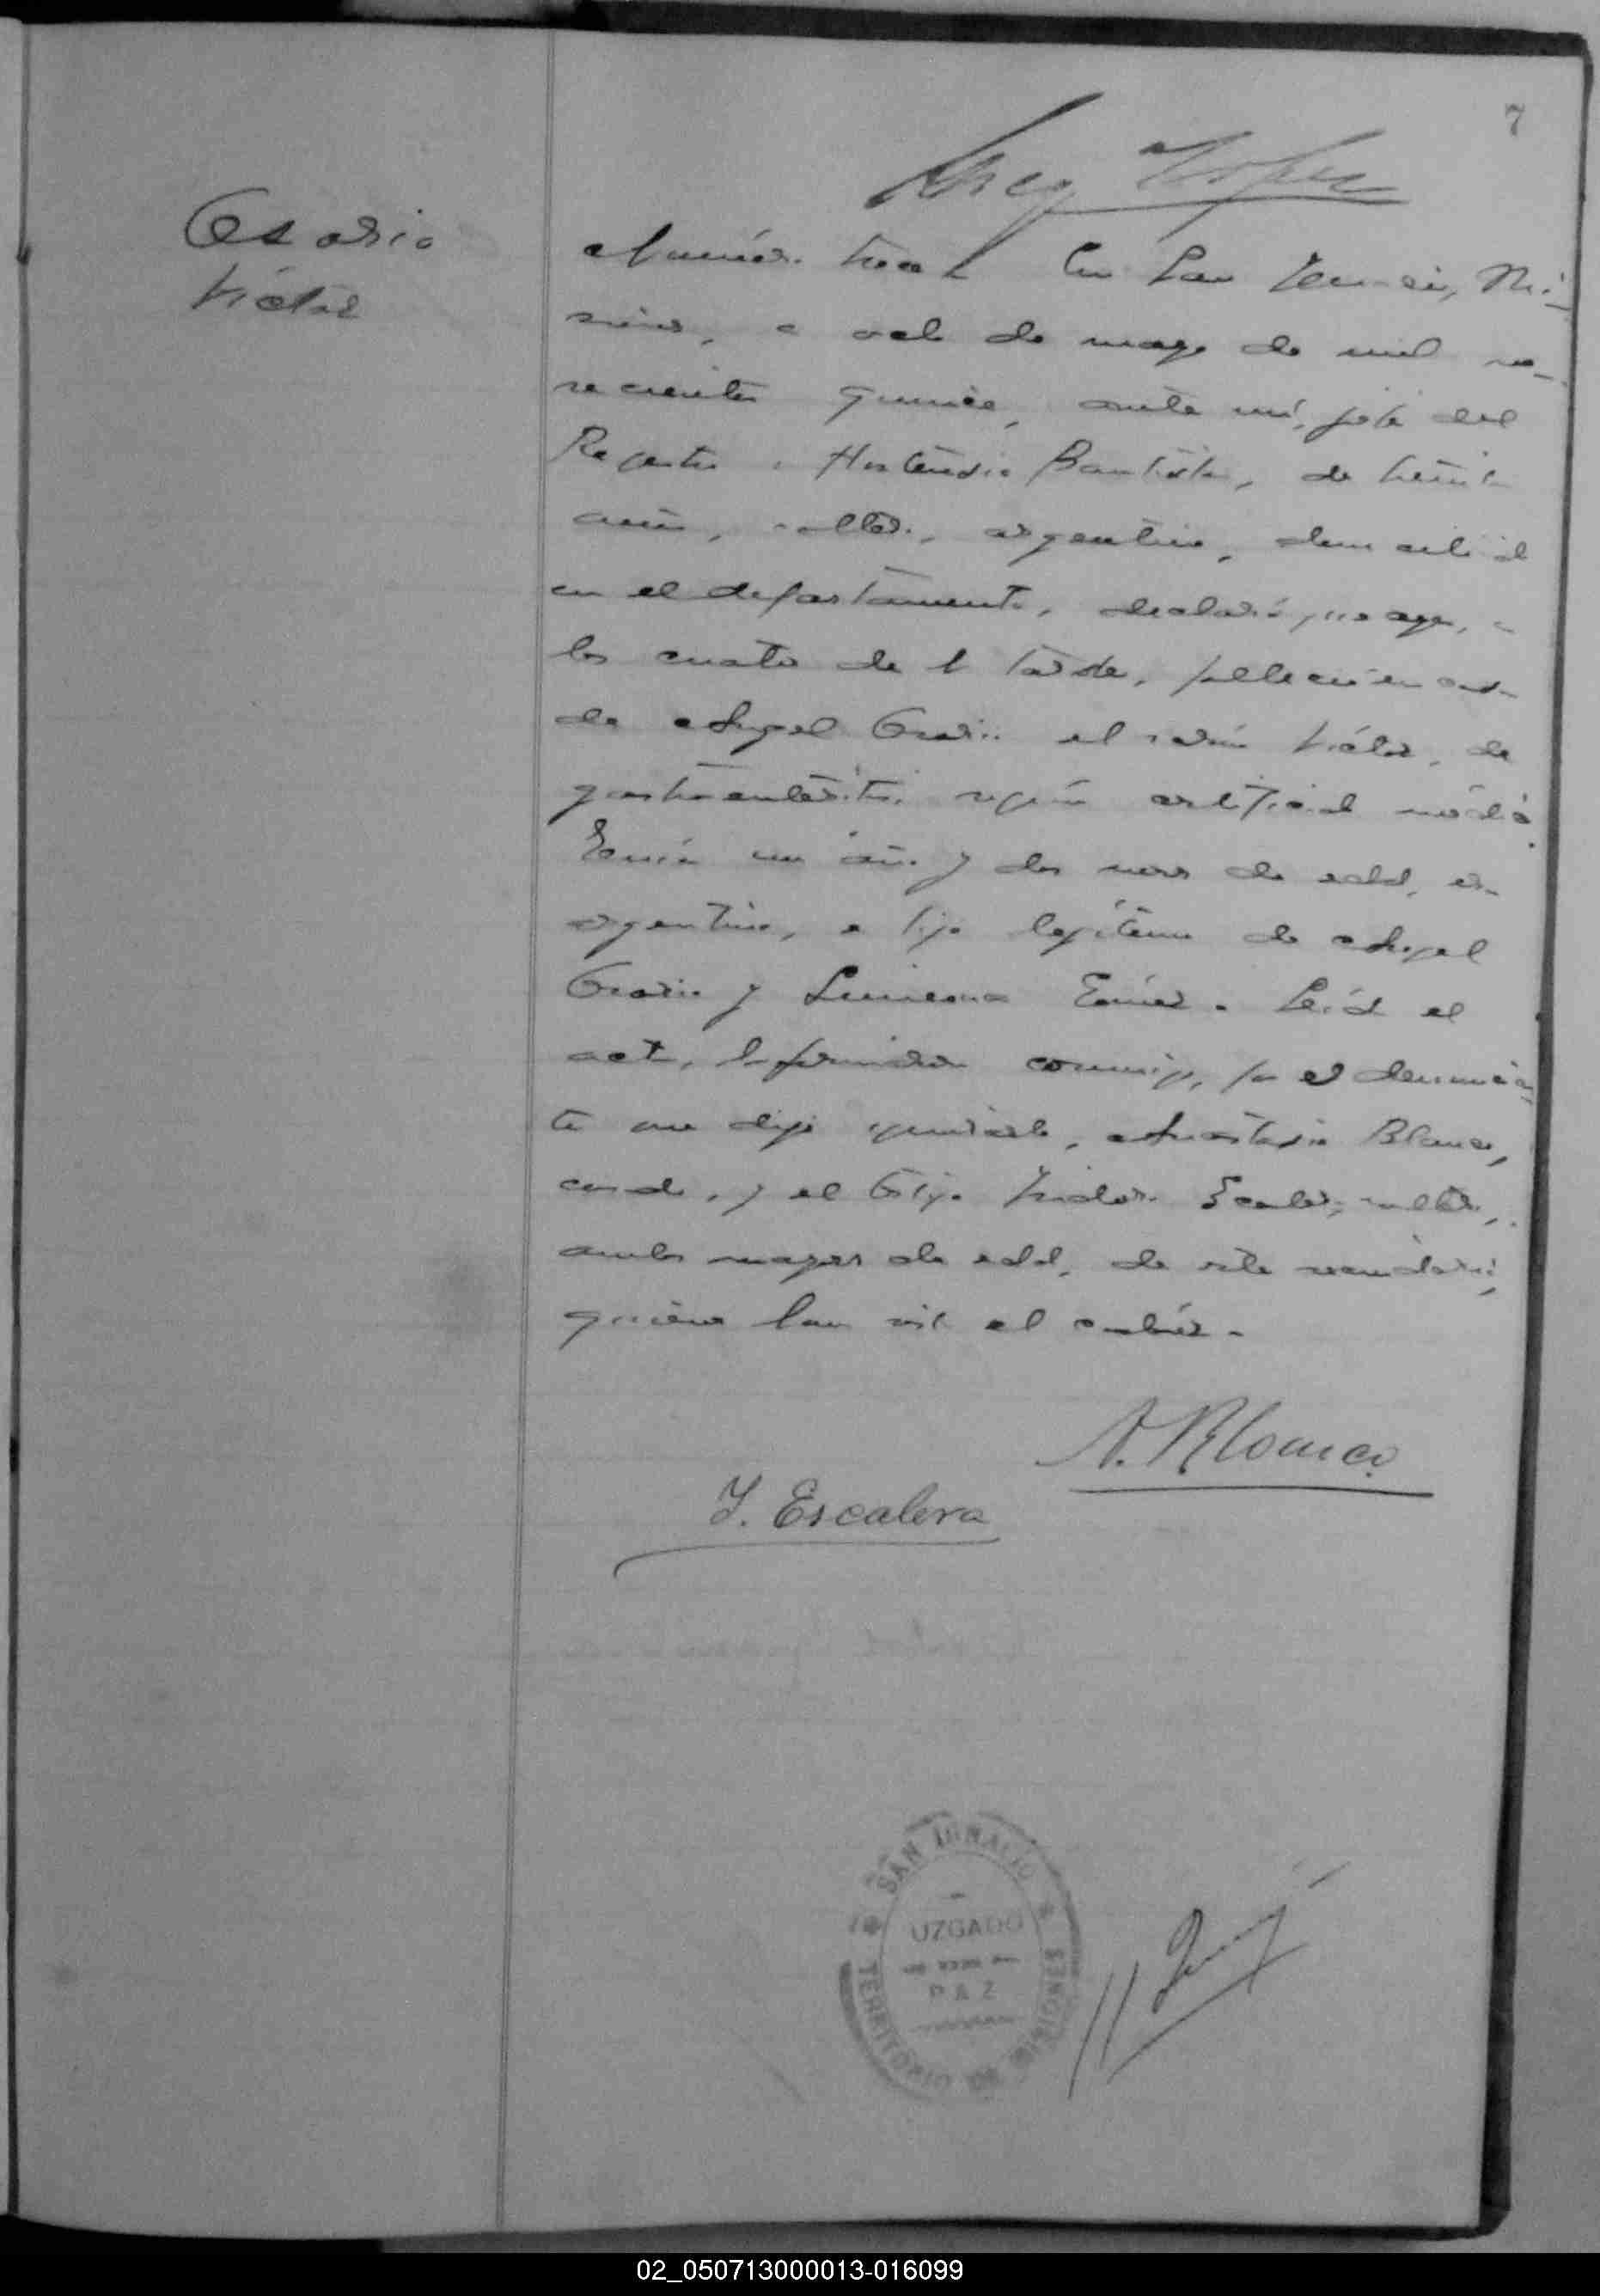 7
Osorio
Víctor
Número trece. En San Ignacio, Mi-
siones, a ocho de mayo de mil no-
vecientos quince, ante mí, jefe del
Registro, Hortensio Bautista, de treinta
años, soltero, argentino, domiciliado
en el departamento, declaró que ayer, a
las cuatro de la tarde, falleció en casa
de Angel Osorio el varón Víctor, de
gastroenteritis, según certificado médico.
Tenía un año y dos meses de edad, era
argentino, e hijo legítimo de Angel
Osorio y Gómez. Leída el
acta, la firmaron conmigo, por el denuncian-
te que dijo ignorarlo, Anastasio Blanco,
casado, y el testigo Isidoro Escalera, soltero,
ambos mayores de edad, de este vecindario,
quienes han visto el cadáver.
A. Blanco
Y. Escalera
SAN IGNACIO
UZGADO
DE
PAZ
TERRITORIO DE MISIONES
02_050713000013-016099